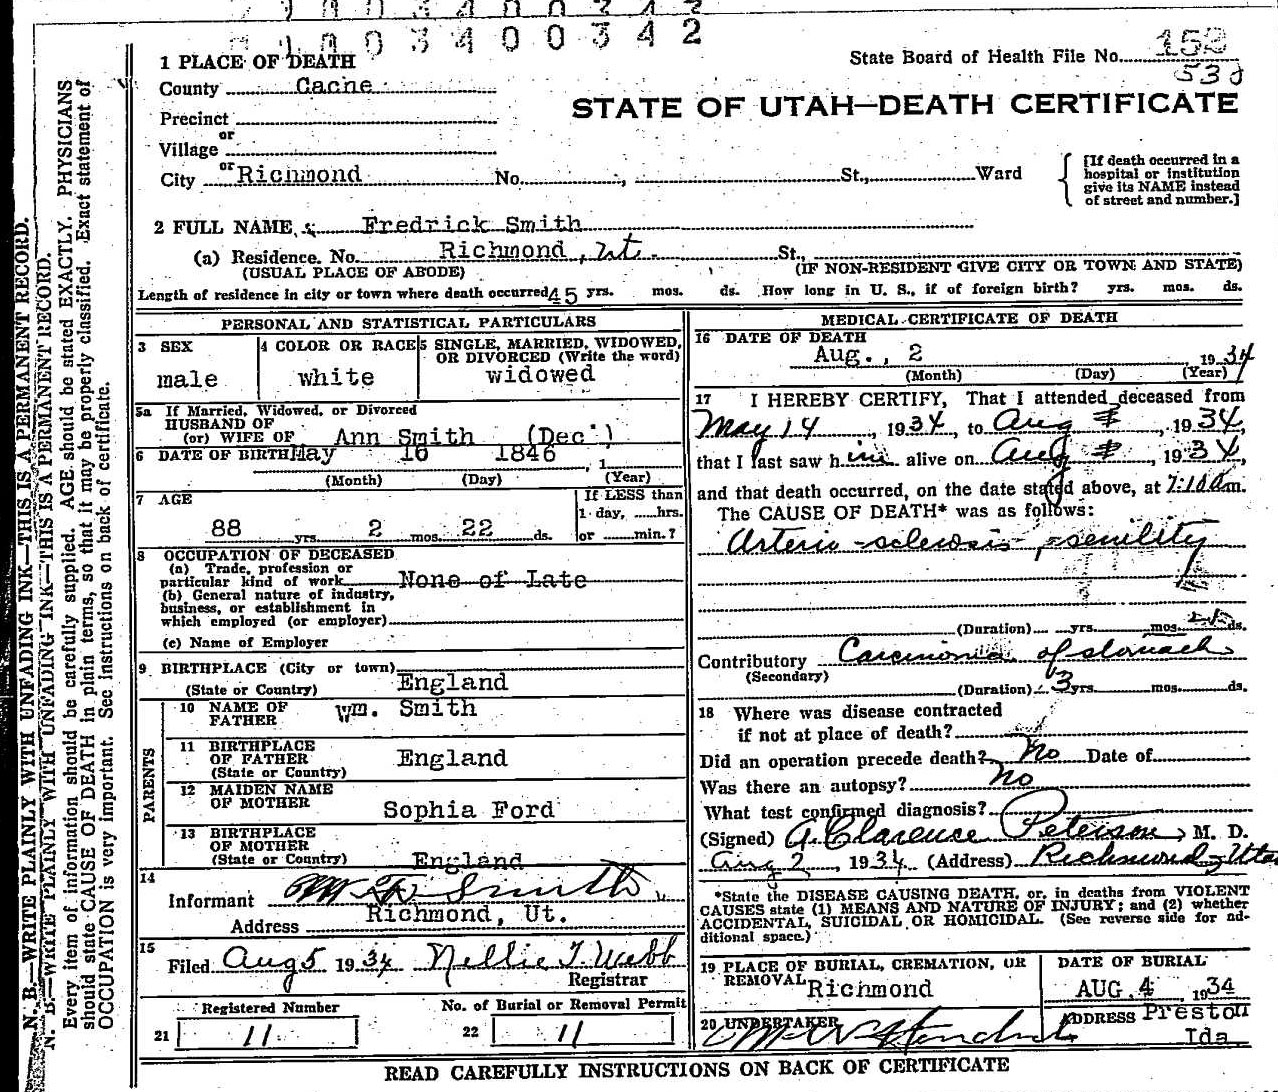 3400342
State Board of Health File No. 152
530
1 PLACE OF DEATH
County Cache
STATE OF UTAH—DEATH CERTIFICATE
Precinct
or
Village
or
City Richmond No. , St., Ward
[If death occurred in a
hospital or institution
give its NAME instead
of street and number.]
2 FULL NAME Fredrick Smith
(a) Residence. No. Richmond, Ut. St.,
(USUAL PLACE OF ABODE) (IF NON-RESIDENT GIVE CITY OR TOWN AND STATE)
Length of residence in city or town where death occurred 45 yrs. mos. ds. How long in U. S., if of foreign birth? yrs. mos. ds.
PERSONAL AND STATISTICAL PARTICULARS
3 SEX
male
4 COLOR OR RACE
white
5 SINGLE, MARRIED, WIDOWED,
OR DIVORCED (Write the word)
widowed
5a If Married, Widowed, or Divorced
HUSBAND OF
(or) WIFE OF Ann Smith (Dec')
6 DATE OF BIRTH May 10 1846 , 1
(Month) (Day) (Year)
7 AGE
88 yrs. 2 mos. 22 ds.
If LESS than
1 day, hrs.
or min.?
8 OCCUPATION OF DECEASED
(a) Trade, profession or
particular kind of work None of Late
(b) General nature of industry,
business, or establishment in
which employed (or employer)
(c) Name of Employer
9 BIRTHPLACE (City or town)
(State or Country) England
PARENTS
10 NAME OF
FATHER Wm. Smith
11 BIRTHPLACE
OF FATHER England
(State or Country)
12 MAIDEN NAME
OF MOTHER Sophia Ford
13 BIRTHPLACE
OF MOTHER
(State or Country) England
14
Informant Smith
Address Richmond, Ut.
15
Filed Aug 5 1934 Nellie T. Webb
Registrar
Registered Number
21 11
No. of Burial or Removal Permit
22 11
MEDICAL CERTIFICATE OF DEATH
16 DATE OF DEATH
Aug., 2 1934
(Month) (Day) (Year)
17 I HEREBY CERTIFY, That I attended deceased from
May 14, 1934, to Aug , 1934,
that I last saw him alive on Aug , 1934,
and that death occurred, on the date stated above, at 7:10 am.
The CAUSE OF DEATH* was as follows:
Arterio-sclerosis, senility
(Duration) yrs. mos. ds.
Contributory Carcinonia of stomach
(Secondary)
(Duration) 3 yrs. mos. ds.
18 Where was disease contracted
if not at place of death?
Did an operation precede death? No Date of
Was there an autopsy? no
What test confirmed diagnosis?
(Signed) A. Clarence Peterson, M. D.
Aug 2, 1934 (Address) Richmond, Utah
*State the DISEASE CAUSING DEATH, or, in deaths from VIOLENT
CAUSES state (1) MEANS AND NATURE OF INJURY; and (2) whether
ACCIDENTAL, SUICIDAL OR HOMICIDAL. (See reverse side for ad-
ditional space.)
19 PLACE OF BURIAL, CREMATION, OR
REMOVAL Richmond
DATE OF BURIAL
AUG. 4 1934
20 UNDERTAKER
ADDRESS Preston
Ida.
READ CAREFULLY INSTRUCTIONS ON BACK OF CERTIFICATE
N. B.—WRITE PLAINLY WITH UNFADING INK—THIS IS A PERMANENT RECORD.
N. B.—WRITE PLAINLY WITH UNFADING INK—THIS IS A PERMANENT RECORD.
Every item of information should be carefully supplied. AGE should be stated EXACTLY. PHYSICIANS
should state CAUSE OF DEATH in plain terms, so that it may be properly classified. Exact statement of
OCCUPATION is very important. See instructions on back of certificate.